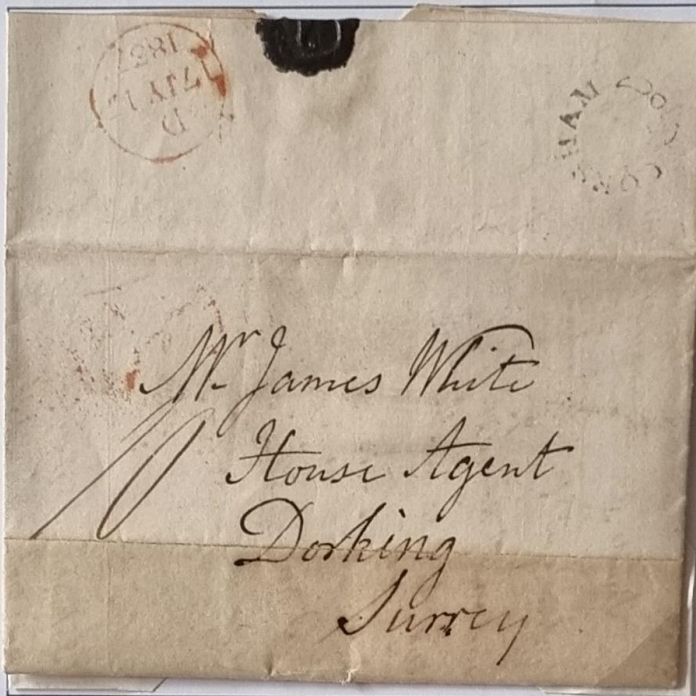 D
17 JY 17
1837
COBHAM
Mr James White
House Agent
Dorking
Surrey